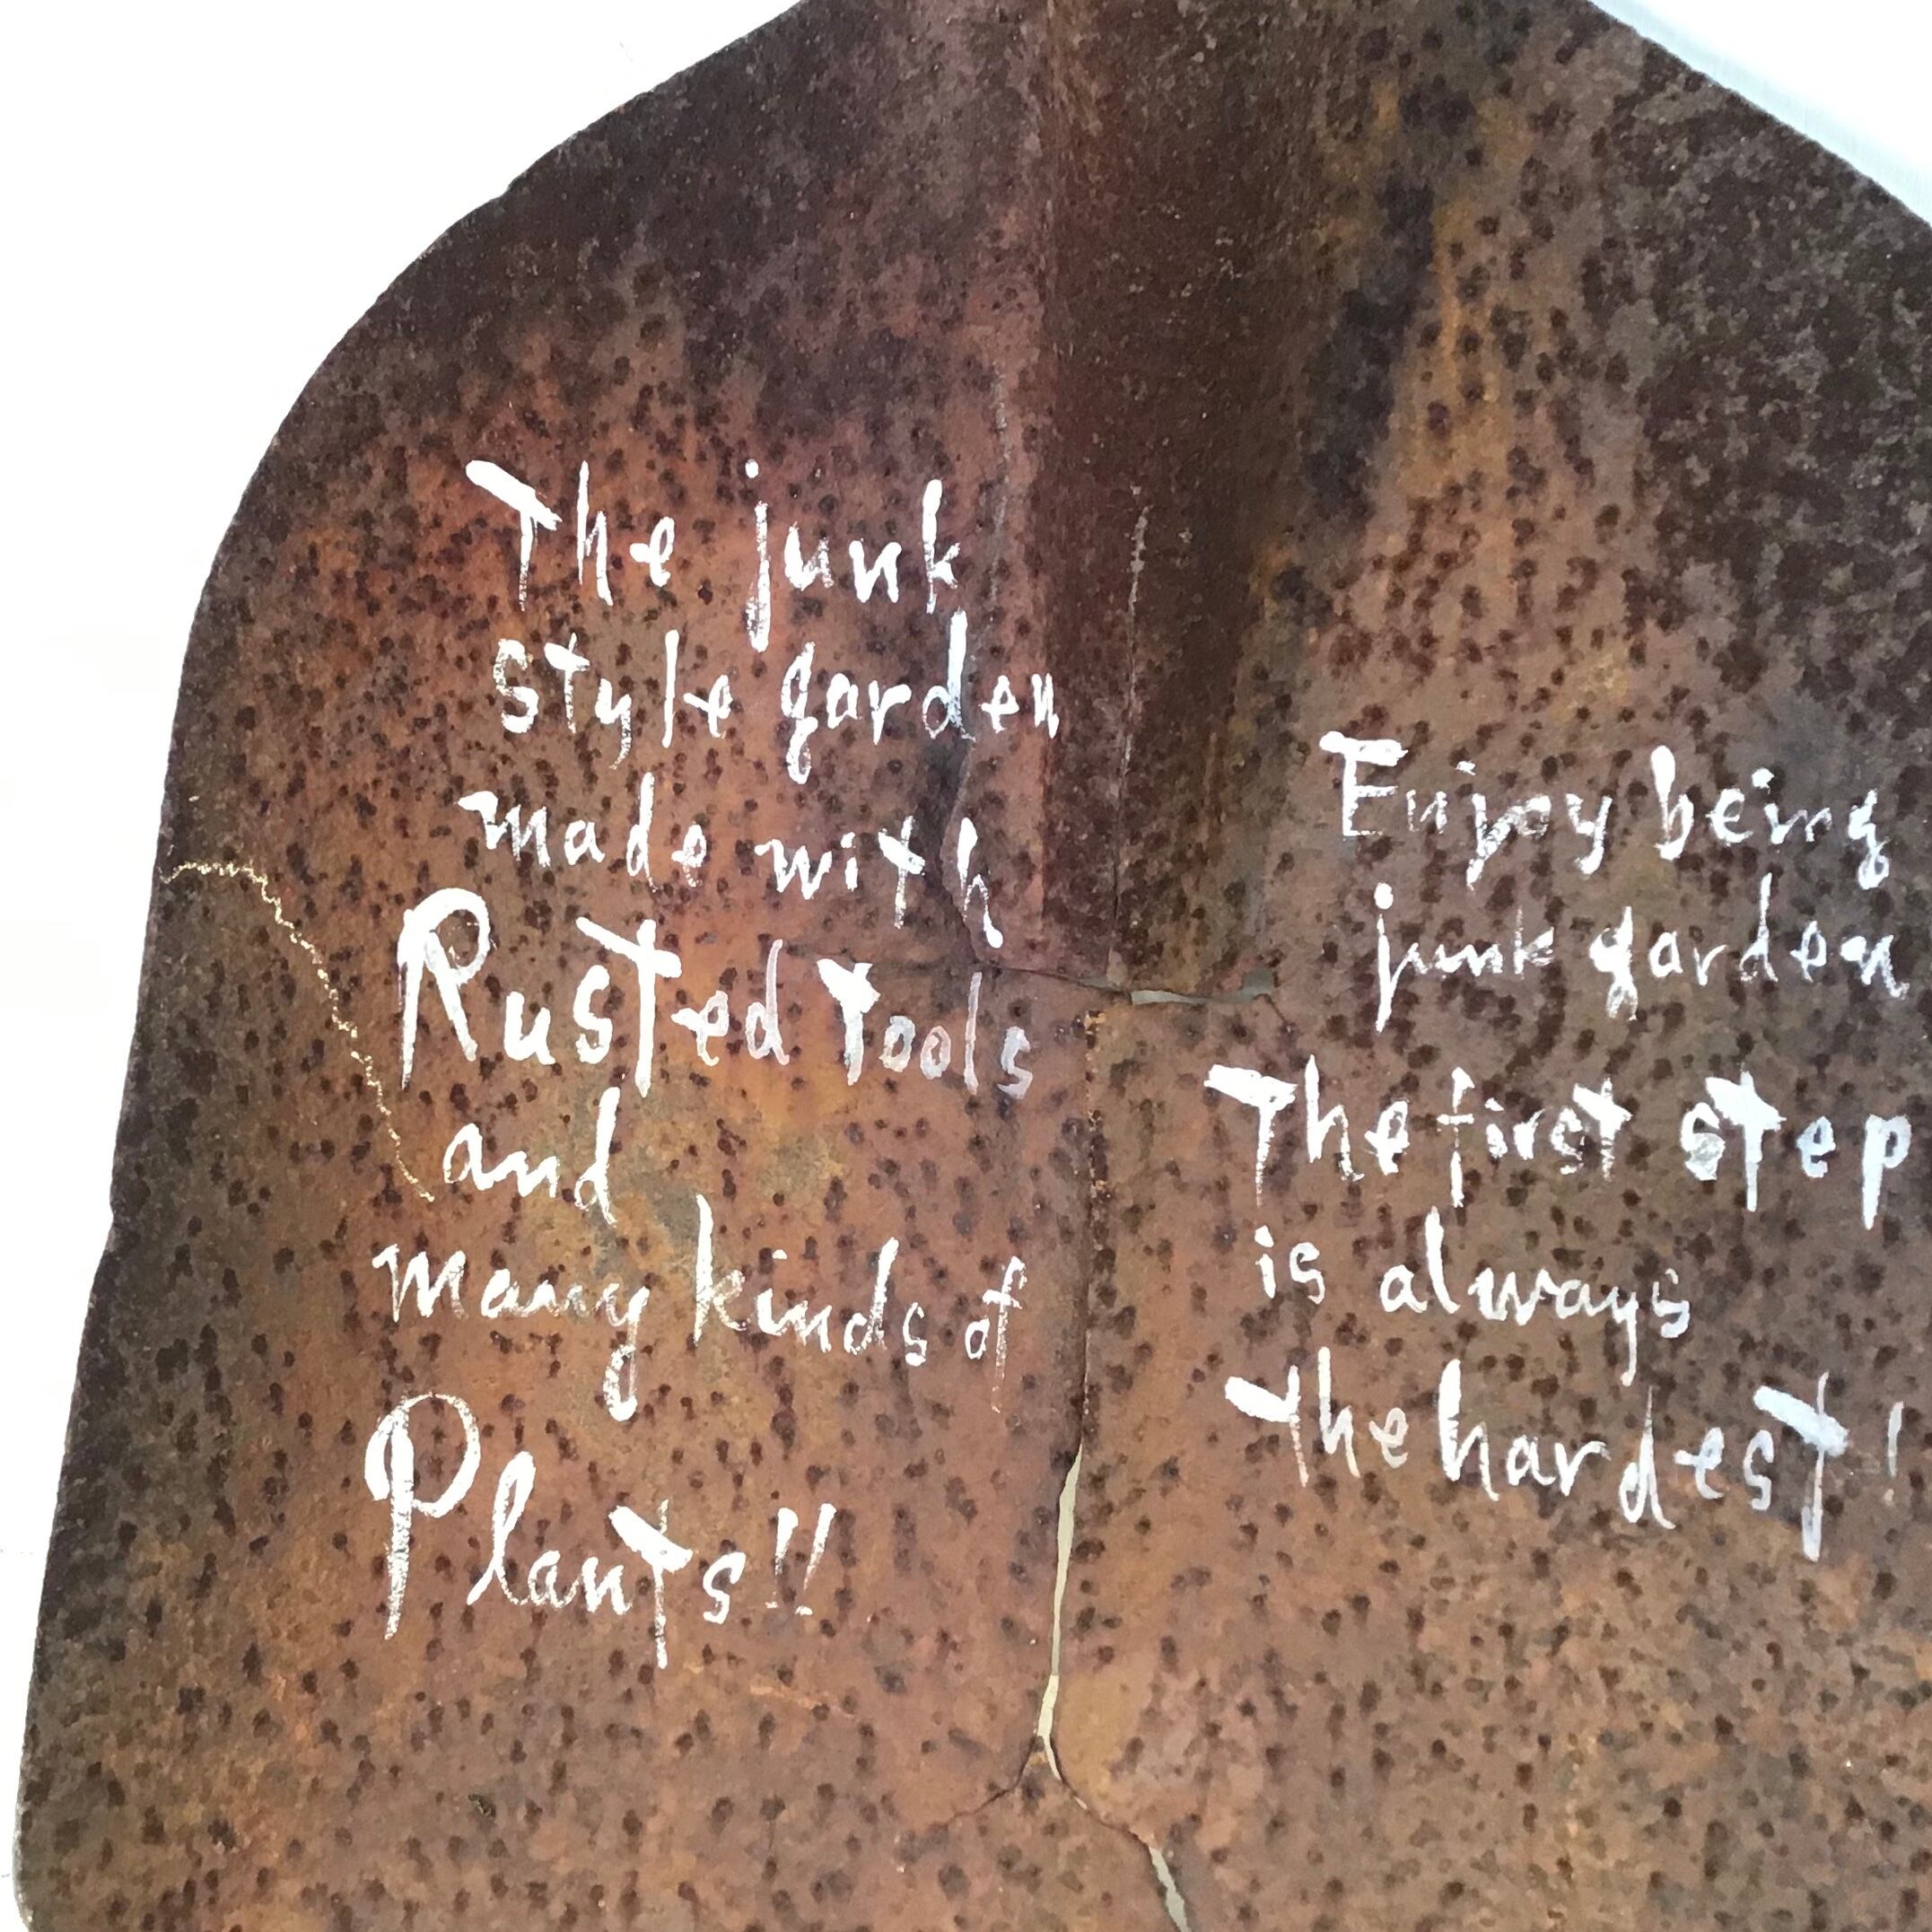 The junk
style garden
made with
Rusted Tools
and
many kinds of
Plants!!
Enjoy being
junk garden
The first step
is always
the hardest!